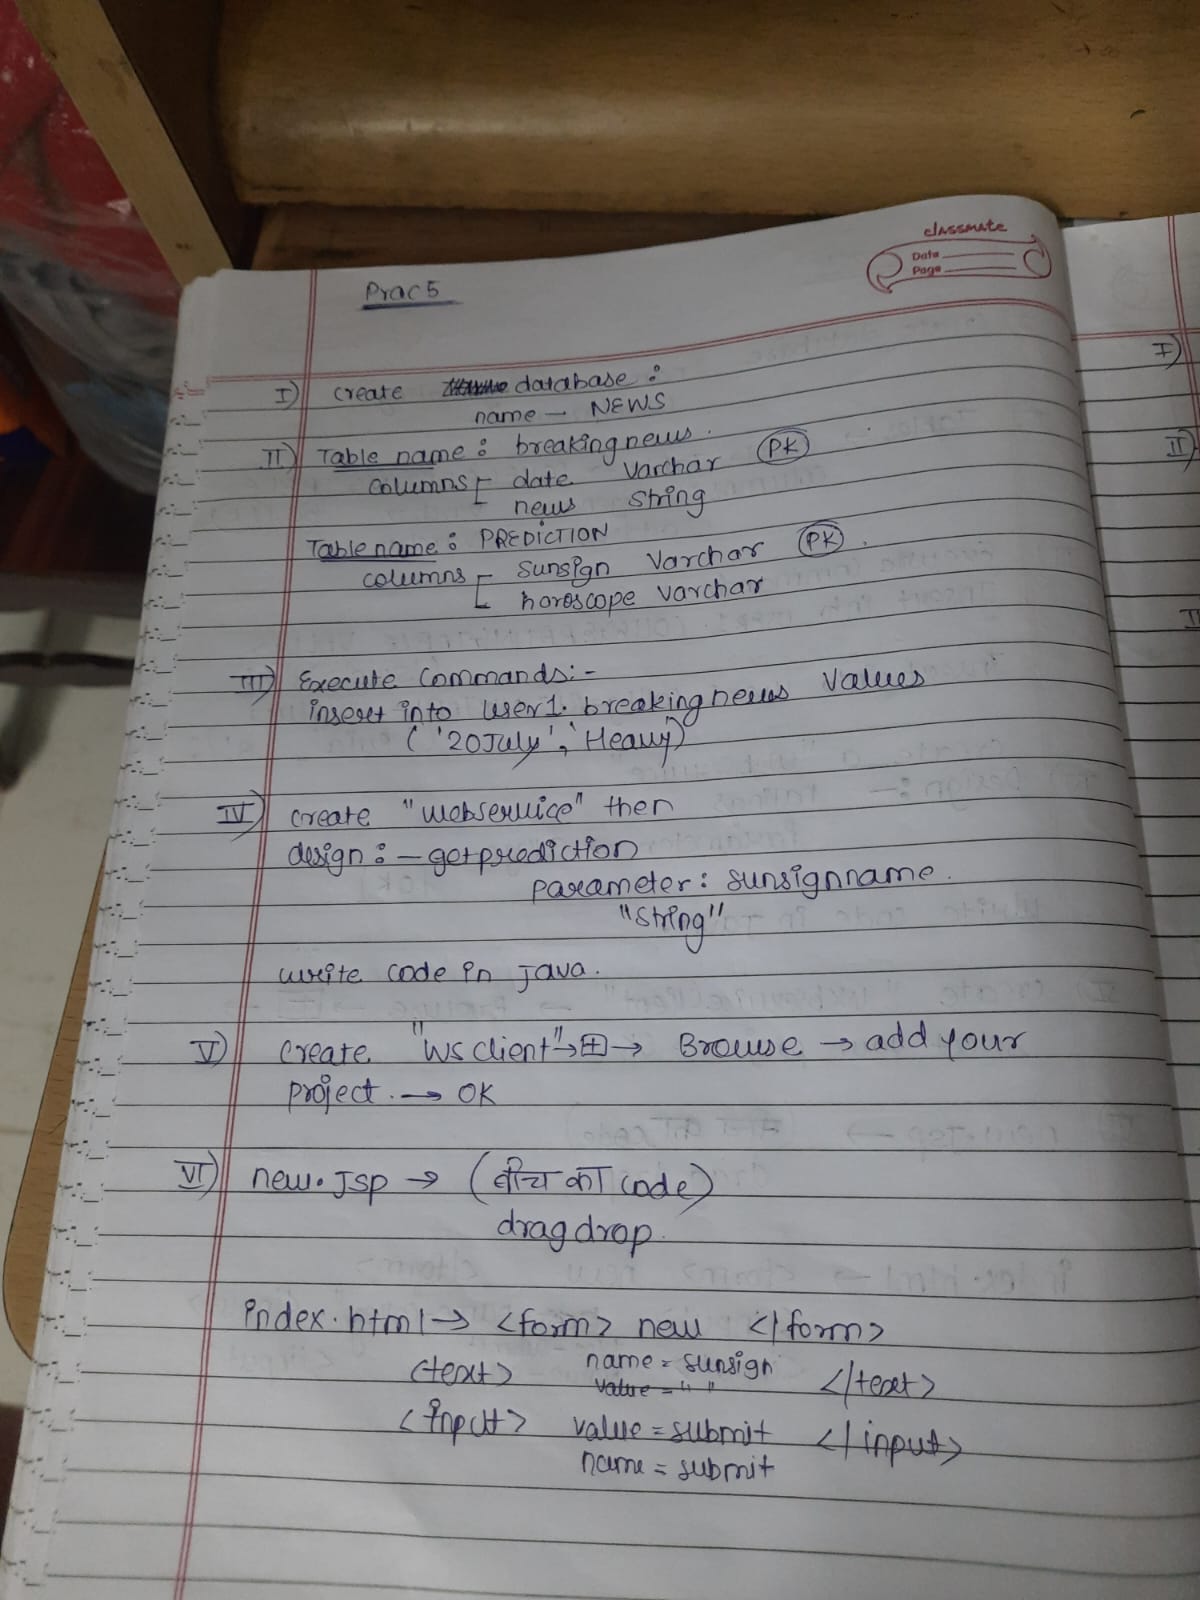 classmate
Date
Page
Prac 5
I) create database :
name - NEWS
II) Table name : breakingnews.
columns date Varchar (PK)
news string
Table name : PREDICTION
columns sunsign Varchar (PK).
horoscope varchar
III) Execute Commands:-
insert into user1. breakingnews values
( '20July', 'Heavy')
IV) create "webservice" then
design : - getprediction
parameter : sunsignname.
"String"
write code in java.
V) create "WS client" → ⊞ → Browse → add your
project. → OK
VI) new.jsp → (बीच का code)
drag drop.
index.html → <form> new </form>
<text> name = sunsign